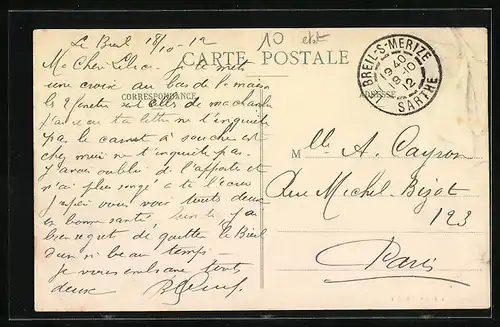 Le Breil 18/10-12
10
CARTE POSTALE
LE BREIL-S-MERIZE
19 40
18-10
12
SARTHE
CORRESPONDANCE
ADRESSE
Ma Chère je te mets
une croix au bas de la maison
les 2 fenêtres celles de ma chambre
j'ai reçu ta lettre ne t'inquiète
pas le carnet à souches est
chez moi ne t'inquiète pas
J'avais oublié de l'apporter et
n'ai plus songé à te l'écrire
J'espère vous voir toutes deux
en bonne santé j'ai
bien regret de quitter le Breil
d'un si beau temps -
je vous embrasse toutes
deux
Mlle A. Cayron
Rue Michel Bizot
123
Paris